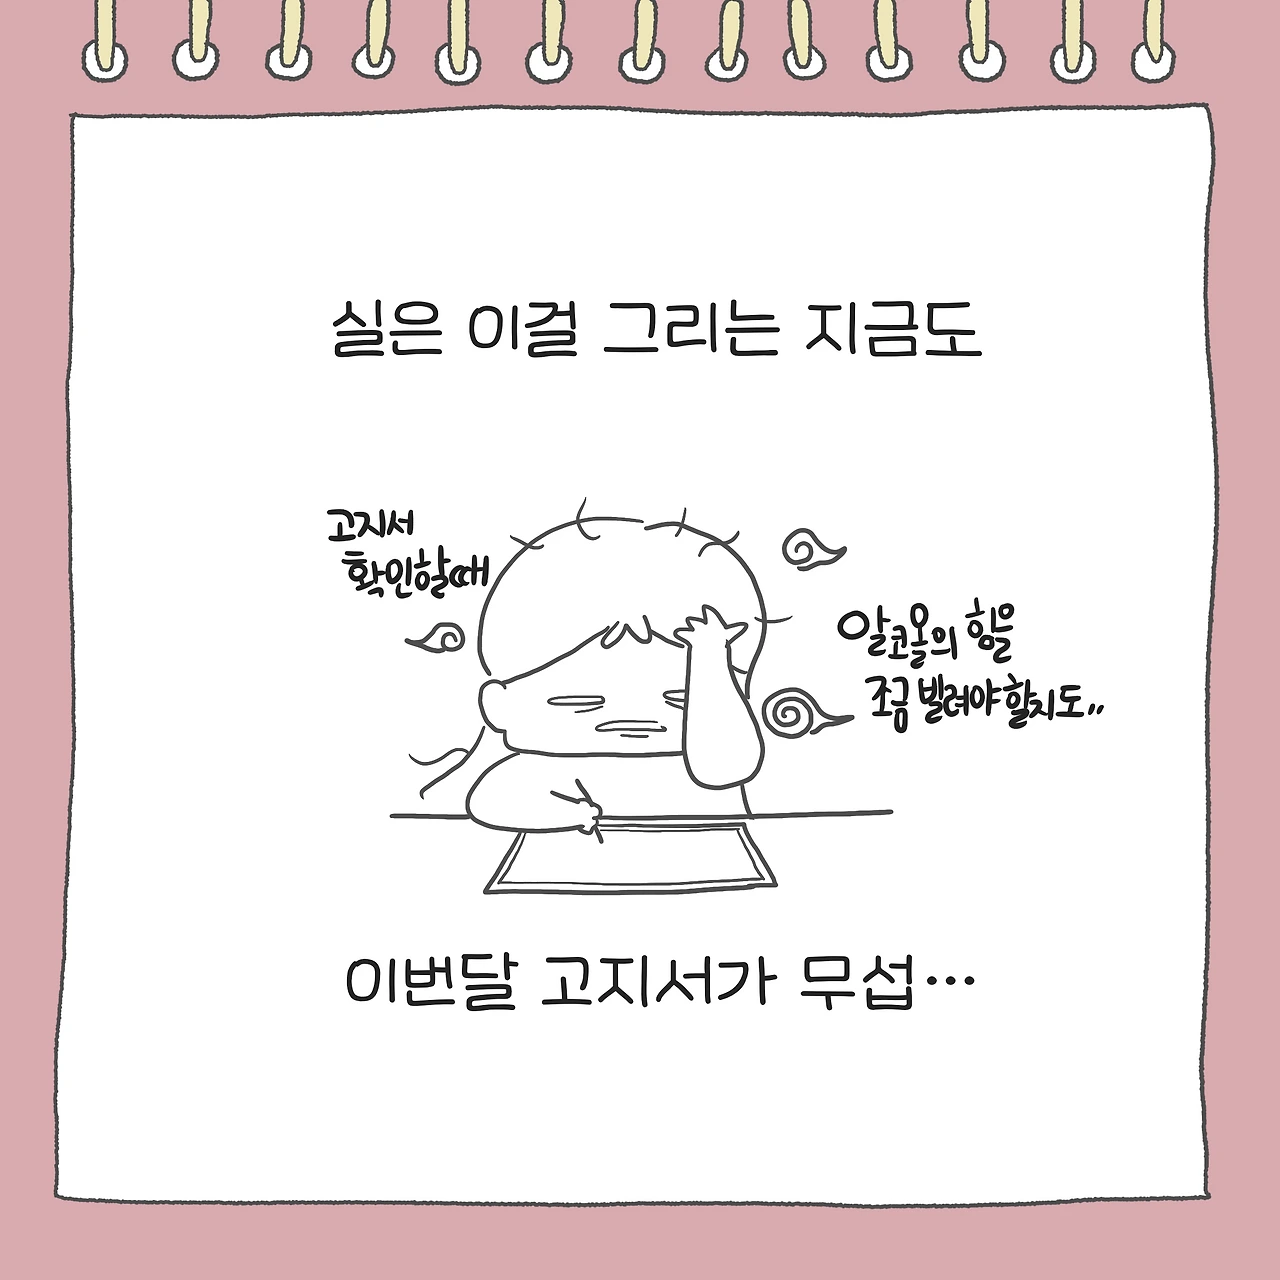 실은 이걸 그리는 지금도
고지서
확인할때
알코올의 힘을
조금 빌려야 할지도..
이번달 고지서가 무섭···